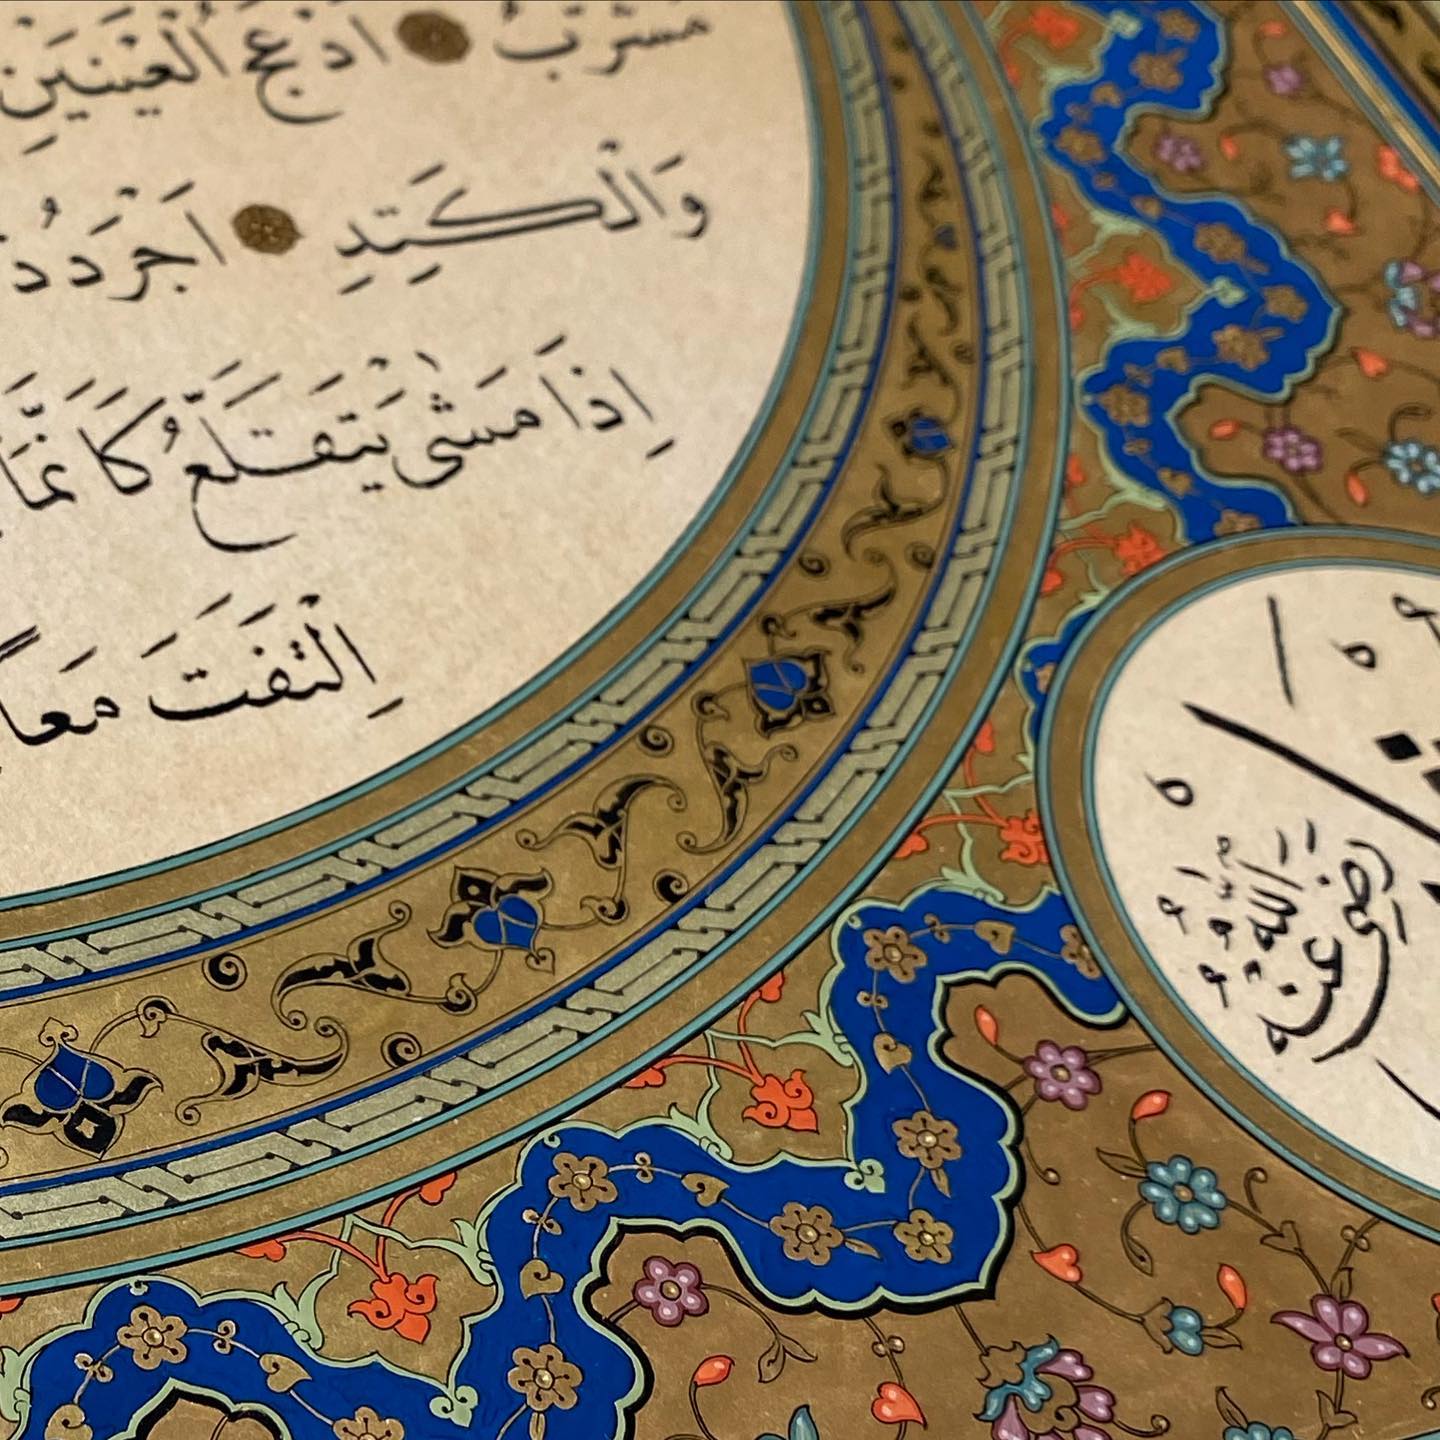 مُشَرَّبٌ ادْعَجُ الْعَيْنَيْنِ
وَالْكَتَدِ اَجْرَدُ ذُ
اِذَا مَشٰى يَتَقَلَّعُ كَاَنَّمَا
اِلْتَفَتَ مَعًا
رَضِيَ اللّٰهُ عَنْهُ